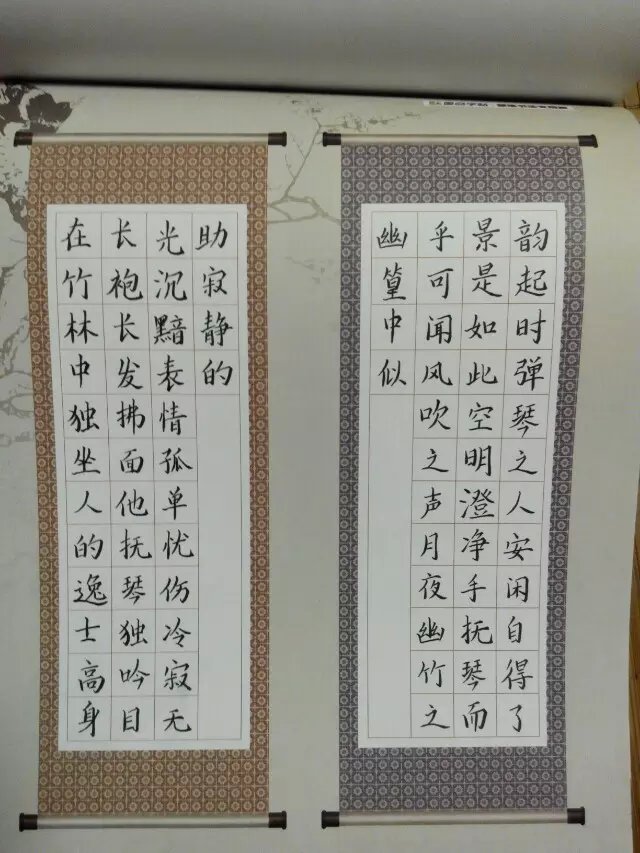 在竹林中独坐人的逸士高身
长袍长发拂面他抚琴独吟目
光沉黯表情孤单忧伤冷寂无
助寂静的
幽篁中似
乎可闻风吹之声月夜幽竹之
景是如此空明澄净手抚琴而
韵起时弹琴之人安闲自得了